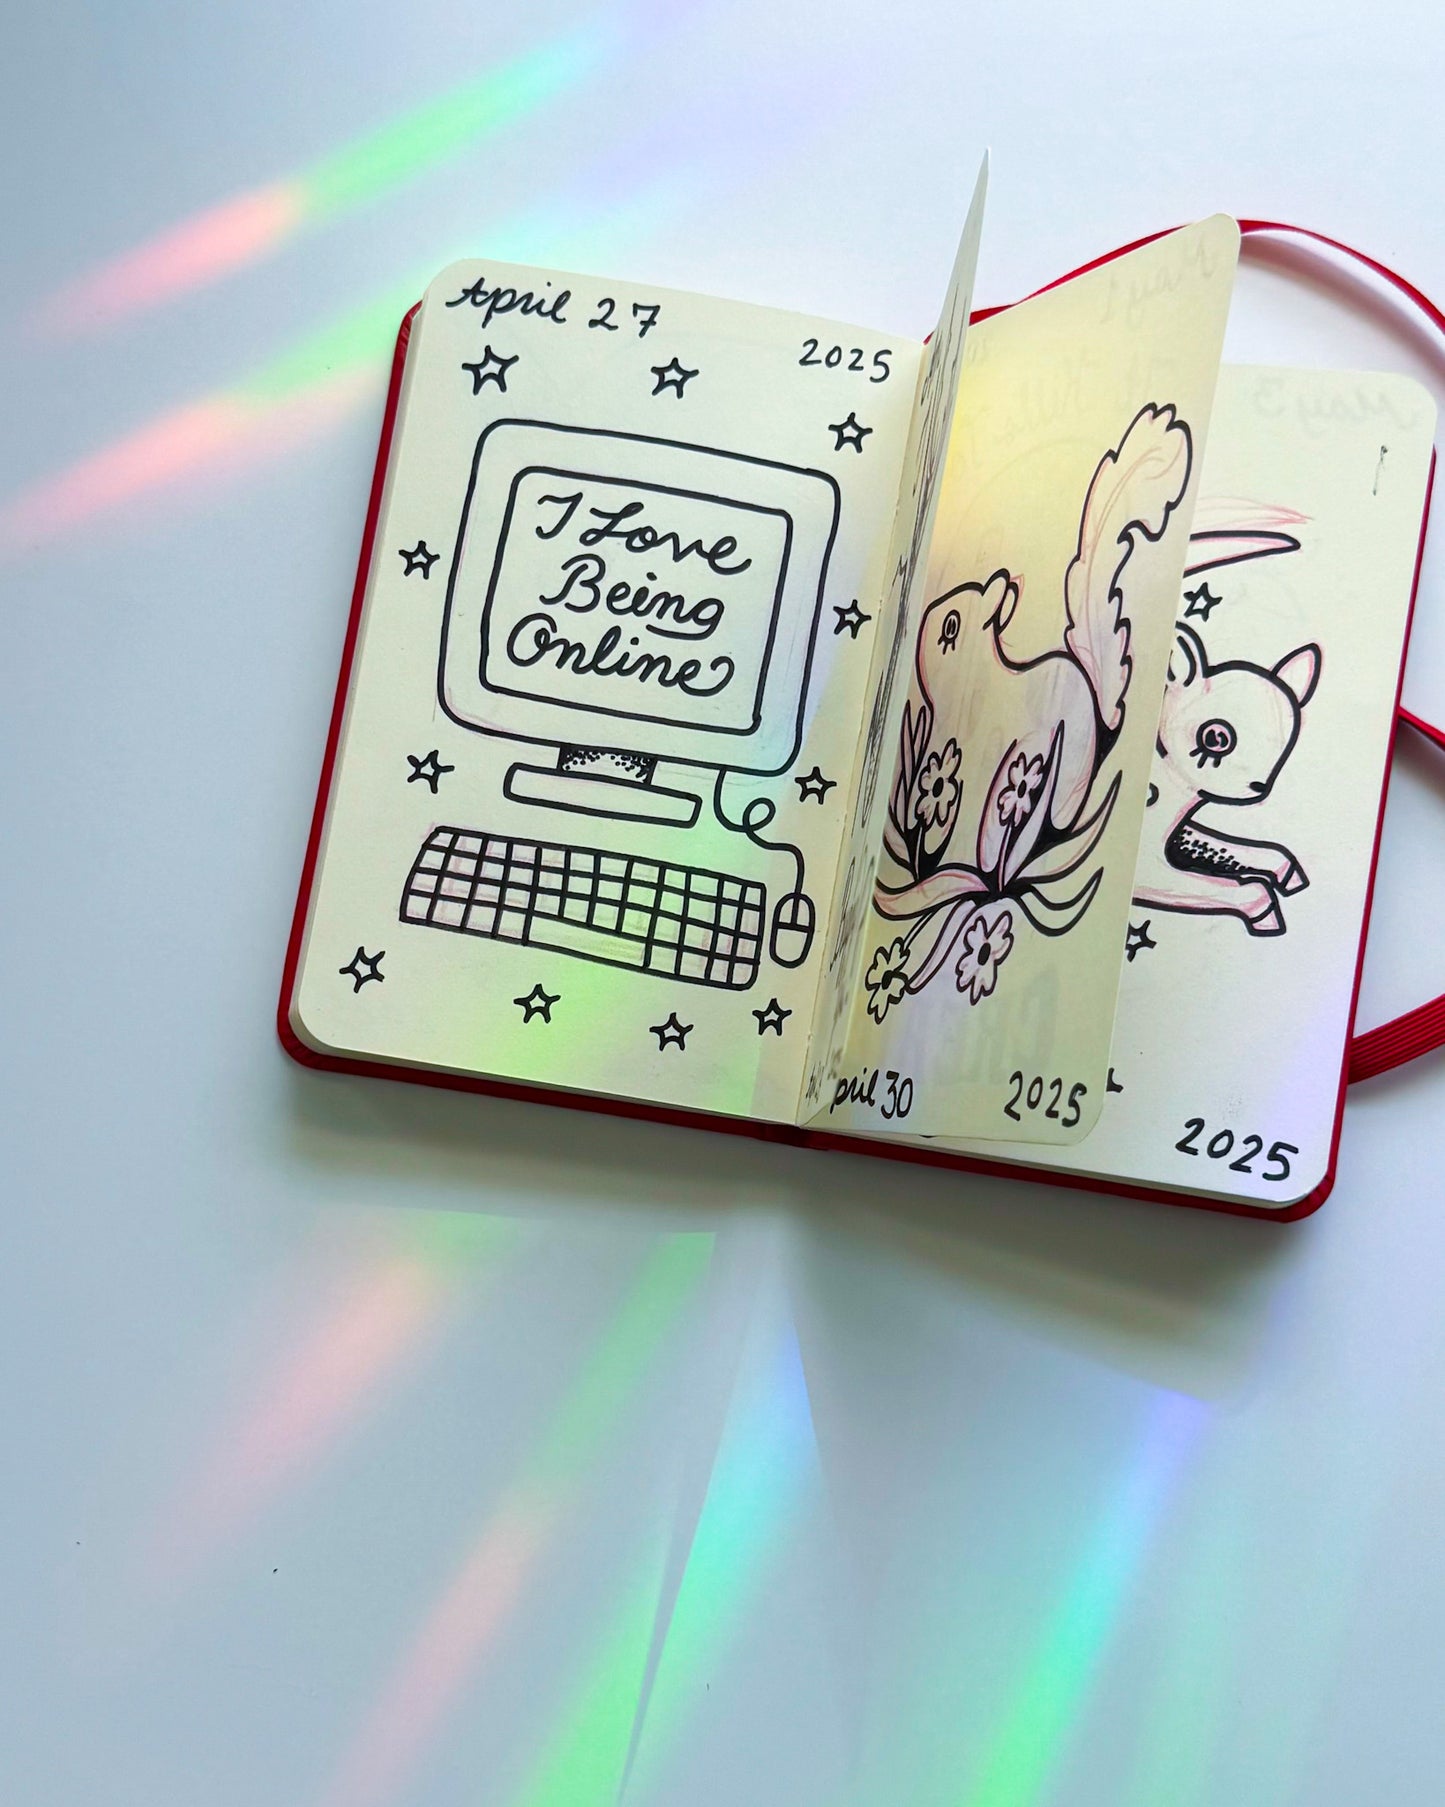 April 27
2025
I Love
Being
Online
pril 30
2025
2025